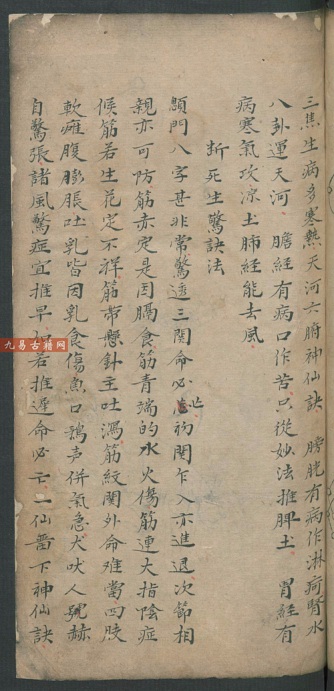 三焦生病多寒熱天河六腑神仙訣 膀胱有病作淋疴腎水
八卦運天河 膽經有病口作苦只從妙法推脾土 胃經有
病寒氣攻涼土肺經能去風
折死生驚訣法
顖門八字甚非常驚透三関命必亡初関乍入亦進退次節相
親亦可防筋赤定是因膈食筋青端的水火傷筋連大指陰症
候筋若生花定不祥筋帶懸針主吐瀉筋紋関外命难當四肢
軟癱腹膨脹吐乳皆因乳食傷魚口鴉声併氣急犬吠人號赫
自驚張諸風驚症宜推早如若推遲命必亡二仙畨下神仙訣
九易古籍网